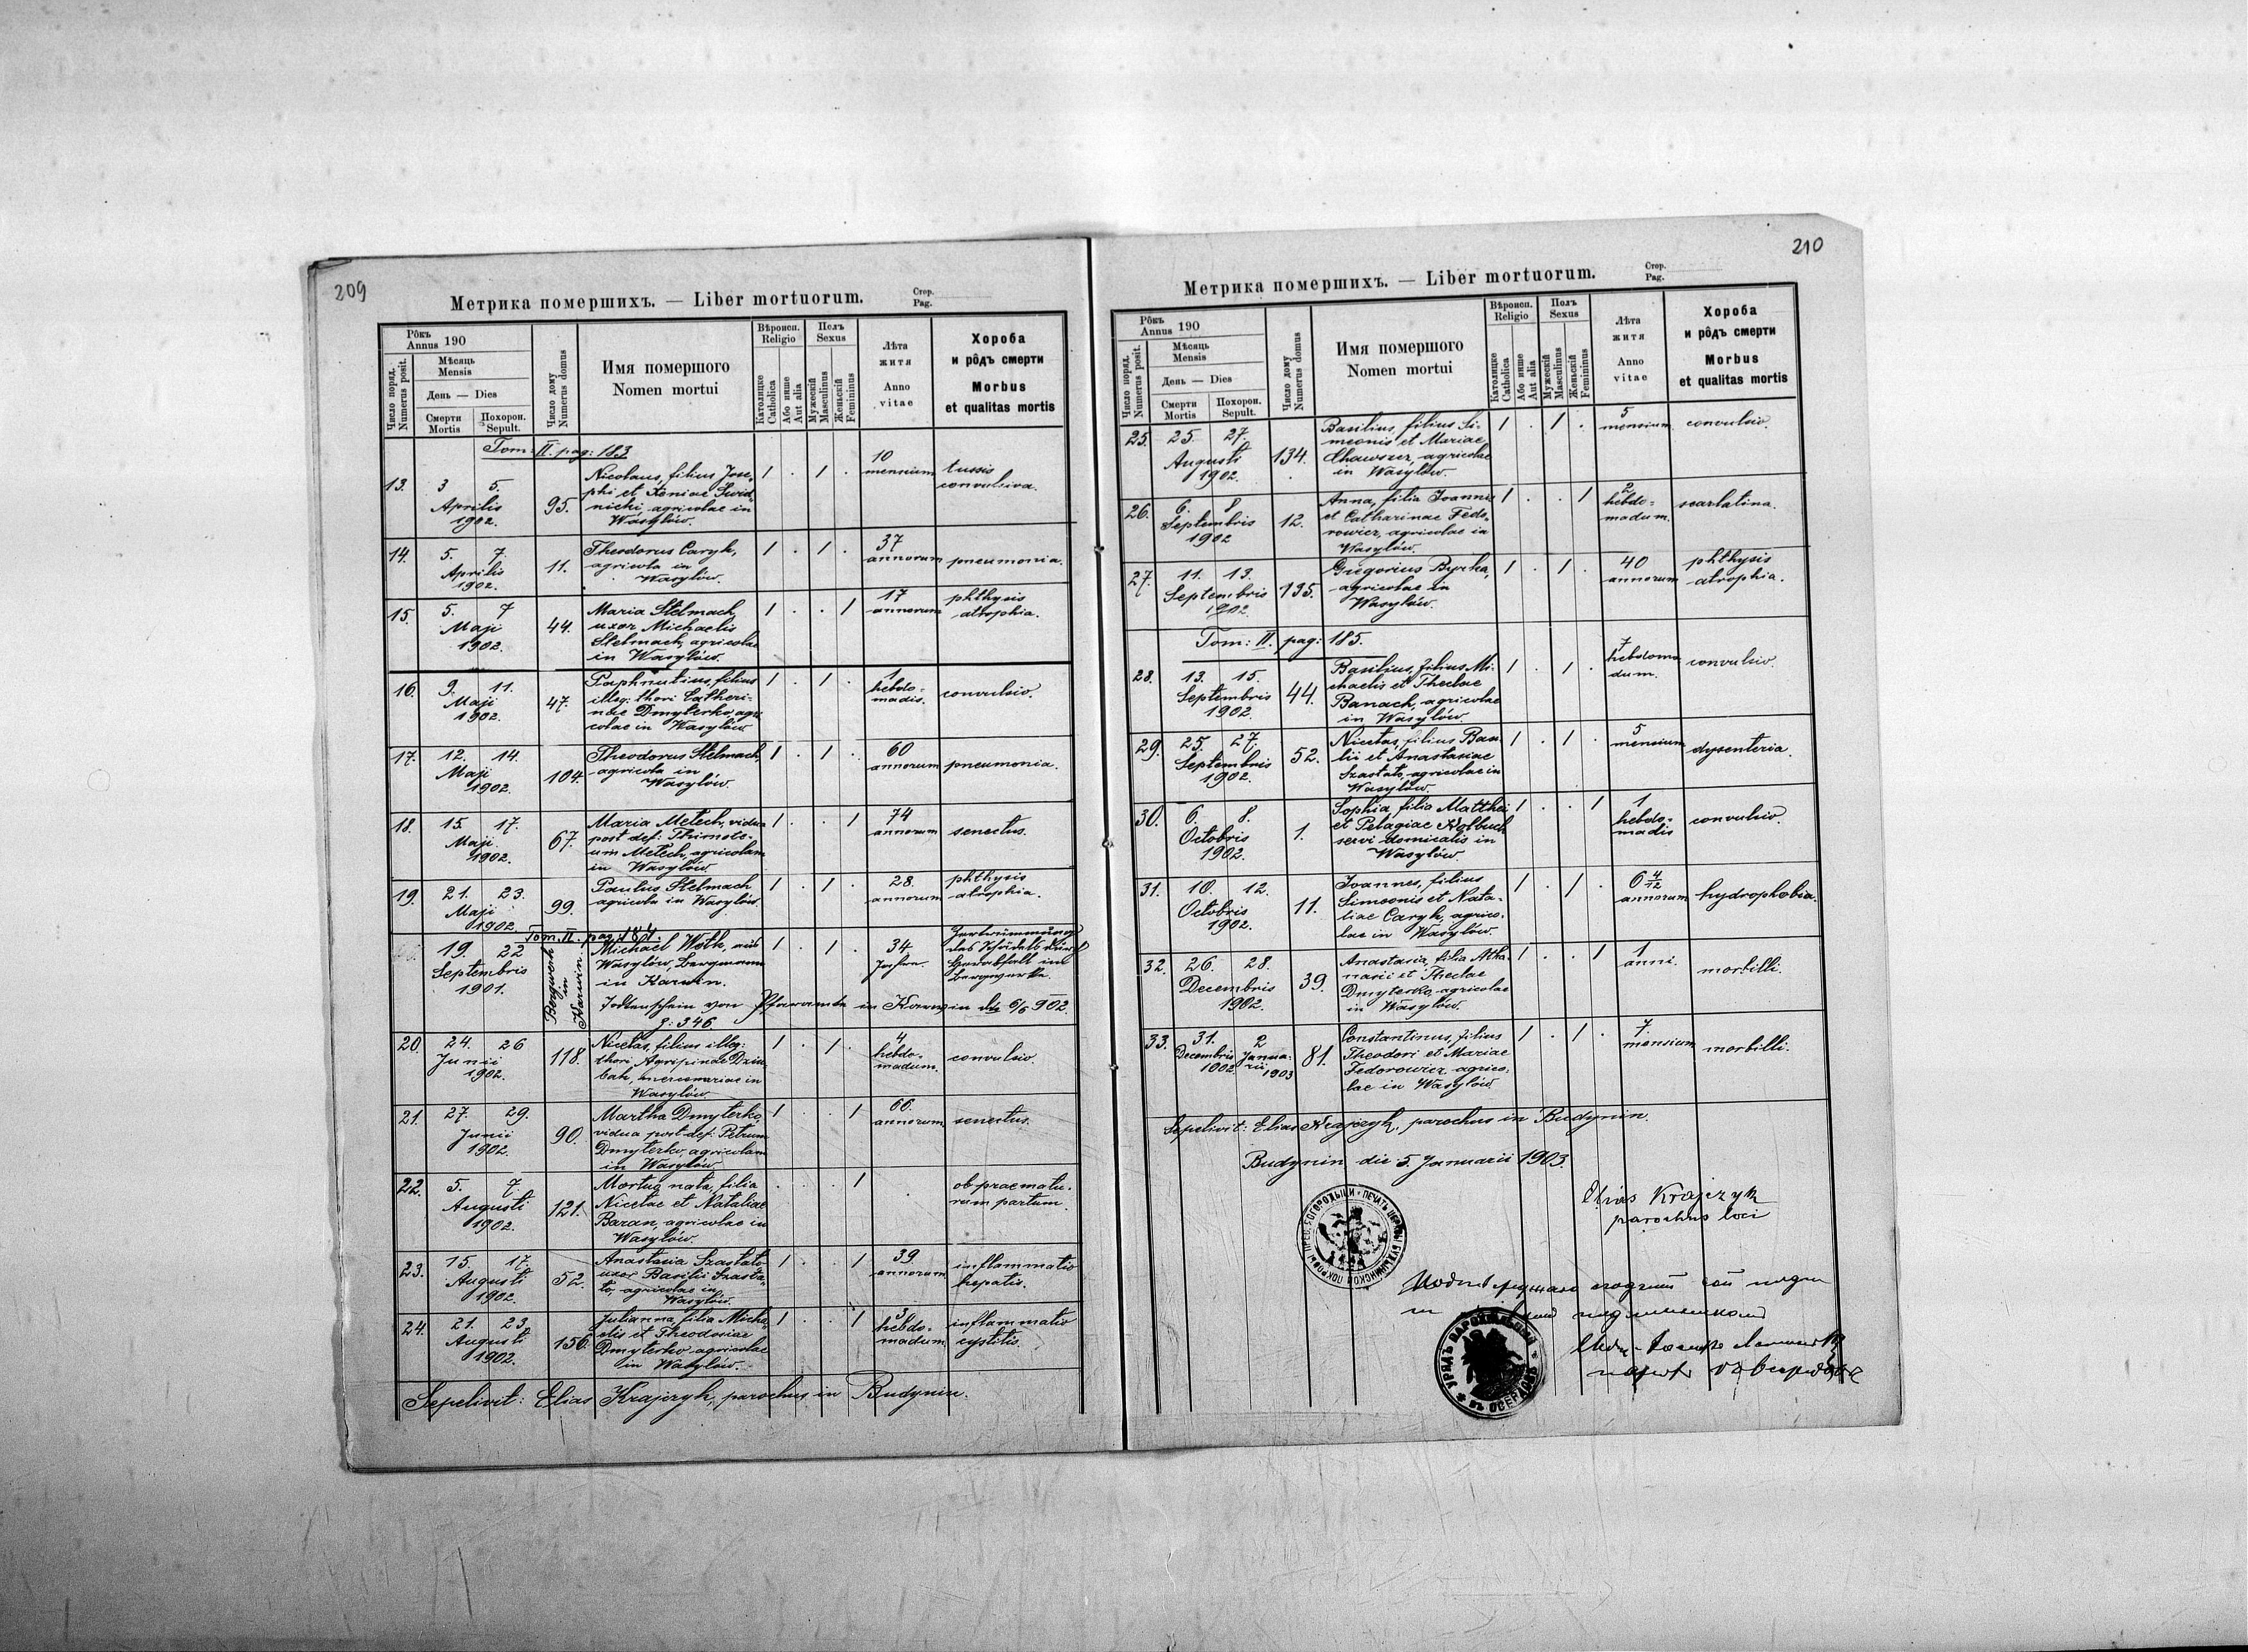 209
Метрика помершихъ. — Liber mortuorum.
Стор.
Pag.
Рôкъ
Annus 190
Число поряд.
Numerus posit.
Мѣсяць
Mensis
День — Dies
Смерти
Mortis
Похорон.
Sepult.
Число дому
Numerus domus
Имя помершого
Nomen mortui
Вѣроисп.
Religio
Католицке
Catholica
Або инше
Aut alia
Полъ
Sexus
Мужескій
Masculinus
Женьскій
Femininus
Лѣта
житя
Anno
vitae
Хороба
и рôдъ смерти
Morbus
et qualitas mortis
Tom: II. pag: 183
13. 3 5. Aprilis 1902. 95.
Nicolaus, filius Jose-
phi et Xeniae Swid-
nicki, agricolae in
Wasylów.
1 . 1 . 10 mensium tussis convulsiva.
14. 5. 7. Aprilis 1902. 11.
Theodorus Caryk,
agricola in
Wasylów.
1 . 1 . 37 annorum pneumonia.
15. 5. 7 Maji 1902. 44.
Maria Stelmach,
uxor Michaelis
Stelmach, agricolae
in Wasylów.
1 . . 1 17 annorum phthysis atrophia.
16. 9. 11. Maji 1902. 47.
Paphnutius, filius
illeg: thori Catheri-
nae Dmyterko, agri-
colae in Wasylów.
1 . 1 . 1 hebdo-madis. convulsio.
17. 12. 14. Maji 1902. 104.
Theodorus Stelmach,
agricola in
Wasylów.
1 . 1 . 60 annorum pneumonia.
18. 15. 17. Maji 1902. 67.
Maria Metech, vidua
post def: Thimote-
um Metech, agricolam
in Wasylów.
1 . . 1 74 annorum senectus.
19. 21. 23. Maji 1902. 99.
Paulus Stelmach
agricola in Wasylów.
1 . 1 . 28. annorum phthysis atrophia.
Tom. II. pag: 184.
19. 22 Septembris 1901. Bergwerk in Karwin.
Michael Wolk, aus
Wasylów, Bergmann
in Karwin.
1 . 1 . 34 Jahre. Zertrümmerung
des Schädels durch
Herabfall im
Bergwerke.
Todtenschein von Pfarramte in Karwin 6/6 902.
Z: 346.
20. 24. 26 Junii 1902. 118.
Nicetas, filius illeg:
thori Agripinae Dziu-
bak, mercenariae in
Wasylów
1 . 1 . 4 hebdo-madum. convulsio.
21. 27. 29. Junii 1902. 90.
Martha Dmyterko,
vidua post def: Petrum
Dmyterko, agricolam
in Wasylów
1 . . 1 66. annorum senectus.
22. 5. 7 Augusti 1902. 121.
Mortua nata, filia
Nicetae et Nataliae
Baran, agricolae in
Wasylów.
. . . 1 . ob praematu-rum partum.
23. 15. 17. Augusti 1902. 52.
Anastasia Szastato
uxor Basilii Szasta-
to, agricolae in
Wasylów.
1 . . 1 39 annorum inflammatio hepatis.
24. 21. 23. Augusti 1902. 156.
Julianna, filia Micha-
elis et Theodosiae
Dmyterko agricolae
in Wasylów.
1 . . 1 3 hebdo-madum inflammatio cystitis.
Sepelivit: Elias Krajczyk, parochus in Budynin.
210
Метрика помершихъ. — Liber mortuorum.
Стор.
Pag.
Рôкъ
Annus 190
Число поряд.
Numerus posit.
Мѣсяць
Mensis
День — Dies
Смерти
Mortis
Похорон.
Sepult.
Число дому
Numerus domus
Имя помершого
Nomen mortui
Вѣроисп.
Religio
Католицке
Catholica
Або инше
Aut alia
Полъ
Sexus
Мужескій
Masculinus
Женьскій
Femininus
Лѣта
житя
Anno
vitae
Хороба
и рôдъ смерти
Morbus
et qualitas mortis
25. 25. 27. Augusti 1902. 134.
Basilius, filius Si-
meonis et Mariae
Chawszer, agricolae
in Wasylów.
1 . 1 . 5 mensium convulsio.
26. 6. 8 Septembris 1902 12.
Anna, filia Joannis
et Catharinae Fedo-
rowicz, agricolae in
Wasylów.
1 . . 1 2 hebdo-madum. scarlatina.
27. 11. 13. Septembris 1902. 135.
Gregorius Byrka,
agricolae in
Wasylów.
1 . 1 . 40 annorum phthysis atrophia.
Tom: II. pag: 185.
28. 13. 15. Septembris 1902. 44.
Basilius, filius Mi-
chaelis et Theclae
Banach, agricolae
in Wasylów.
1 . 1 . 7 hebdoma dum. convulsio.
29. 25. 27. Septembris 1902. 52.
Nicetas, filius Basi-
lii et Anastasiae
Szastato, agricolae in
Wasylów.
1 . 1 . 5 mensium dysenteria.
30. 6. 8. Octobris 1902. 1.
Sophia, filia Matthei
et Pelagiae Holbuch
servi domicalis in
Wasylów.
1 . . 1 1 hebdo-madis convulsio.
31. 10. 12. Octobris 1902. 11.
Joannes, filius
Simeonis et Nata-
liae Caryk, agrico-
lae in Wasylów.
1 . 1 . 6 4/12 annorum hydrophobia.
32. 26. 28. Decembris 1902. 39.
Anastasia, filia Atha-
nasii et Theclae
Dmyterko, agricolae
in Wasylów.
1 . . 1 1 anni. morbilli.
33. 31. Decembris 1902. 2 Janua-rii 1903 81.
Constantinus, filius
Theodori et Mariae
Fedorowicz, agrico-
lae in Wasylów.
1 . 1 . 7. mensium morbilli.
Sepelivit: Elias Krajczyk, parochus in Budynin.
Budynin die 5. Januarii 1903.
Elias Krajczyk
parochus loci
УРЯДЪ ПАРОХІАЛЬНЫЙ
въ ОСЕРДОВѢ